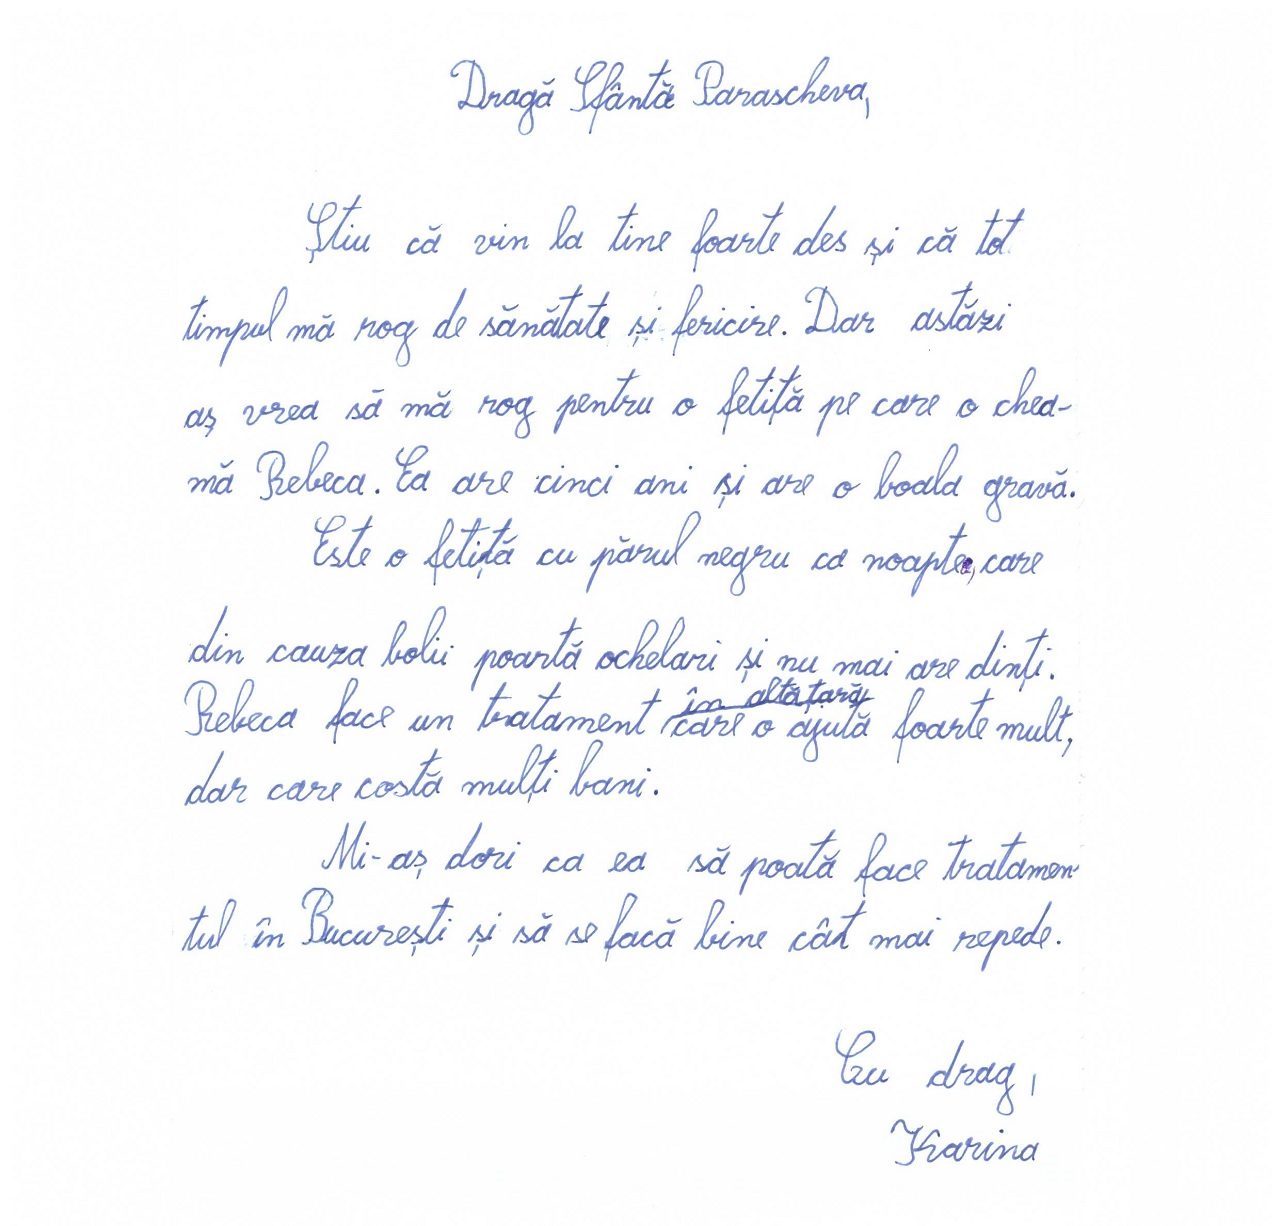 Dragă Sfântă Parascheva,
Știu că vin la tine foarte des și că tot
timpul mă rog de sănătate și fericire. Dar astăzi
aș vrea să mă rog pentru o fetiță pe care o chea-
mă Rebeca. Ea are cinci ani și are o boala gravă.
Este o fetiță cu părul negru ca noaptea, care
din cauza bolii poartă ochelari și nu mai are dinți.
în altă țară
Rebeca face un tratament care o ajută foarte mult,
dar care costă mulți bani.
Mi-aș dori ca ea să poată face tratamen-
tul în București și să se facă bine cât mai repede.
Cu drag,
Karina